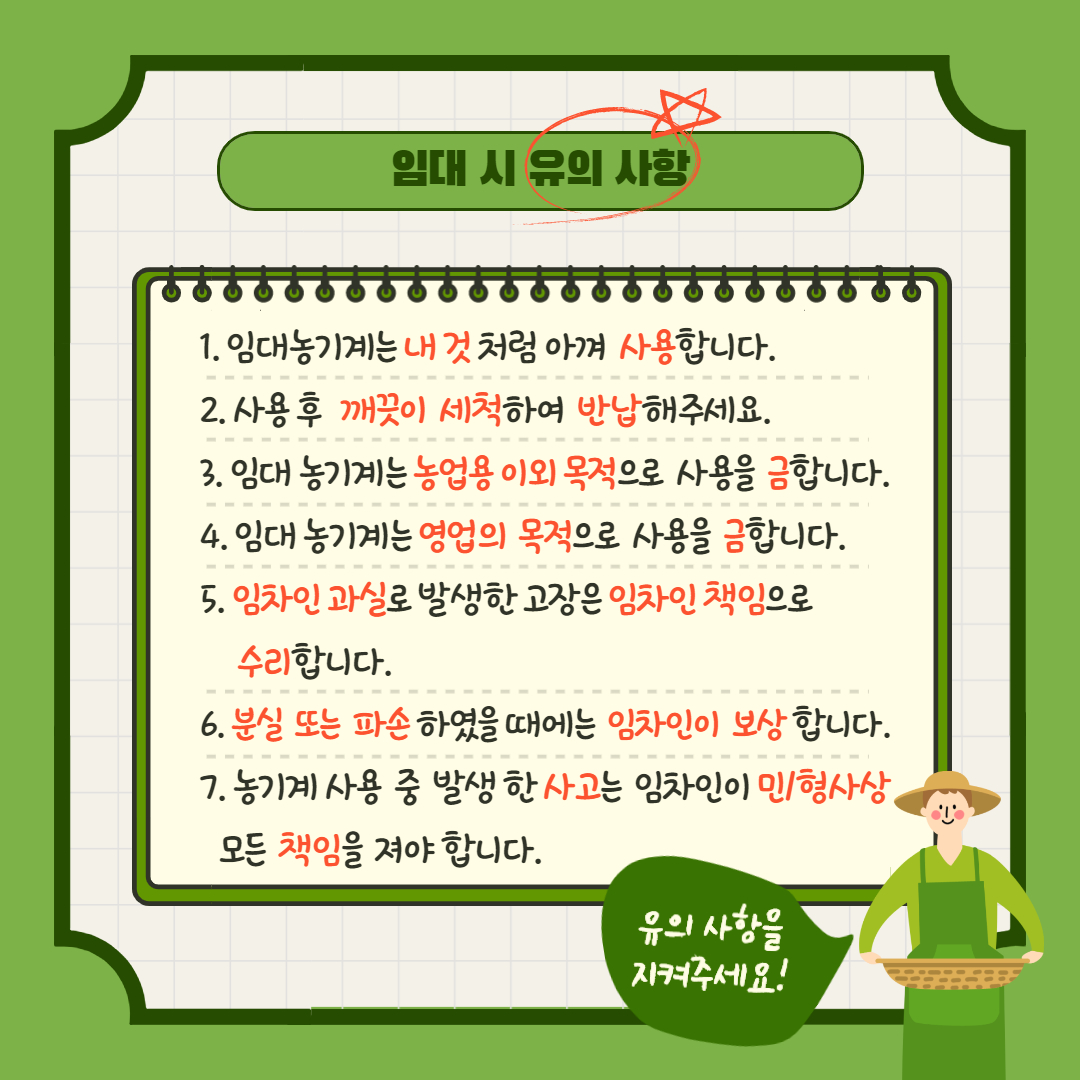 임대 시 유의 사항
1. 임대농기계는 내 것 처럼 아껴 사용합니다.
2. 사용 후 깨끗이 세척하여 반납해주세요.
3. 임대 농기계는 농업용 이외 목적으로 사용을 금합니다.
4. 임대 농기계는 영업의 목적으로 사용을 금합니다.
5. 임차인 과실로 발생한 고장은 임차인 책임으로
수리합니다.
6. 분실 또는 파손 하였을 때에는 임차인이 보상 합니다.
7. 농기계 사용 중 발생 한 사고는 임차인이 민/형사상
모든 책임을 져야 합니다.
유의 사항을
지켜주세요!